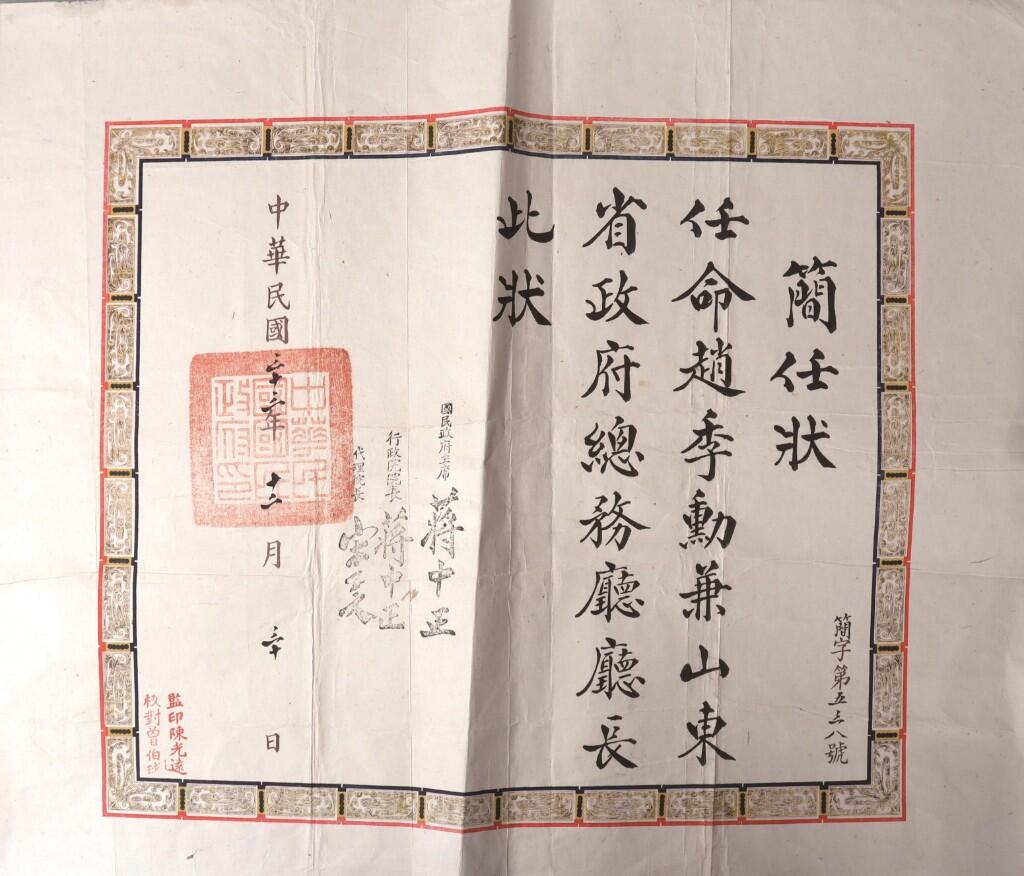 簡任狀
簡字第五三八號
任命趙季勳兼山東
省政府總務廳廳長
此狀
國民政府主席 蔣中正
行政院院長 蔣中正
代理院長 宋子文
中華民國三十三年十二月三十日
中華民國國民政府印
監印陳光遠
校對曾伯